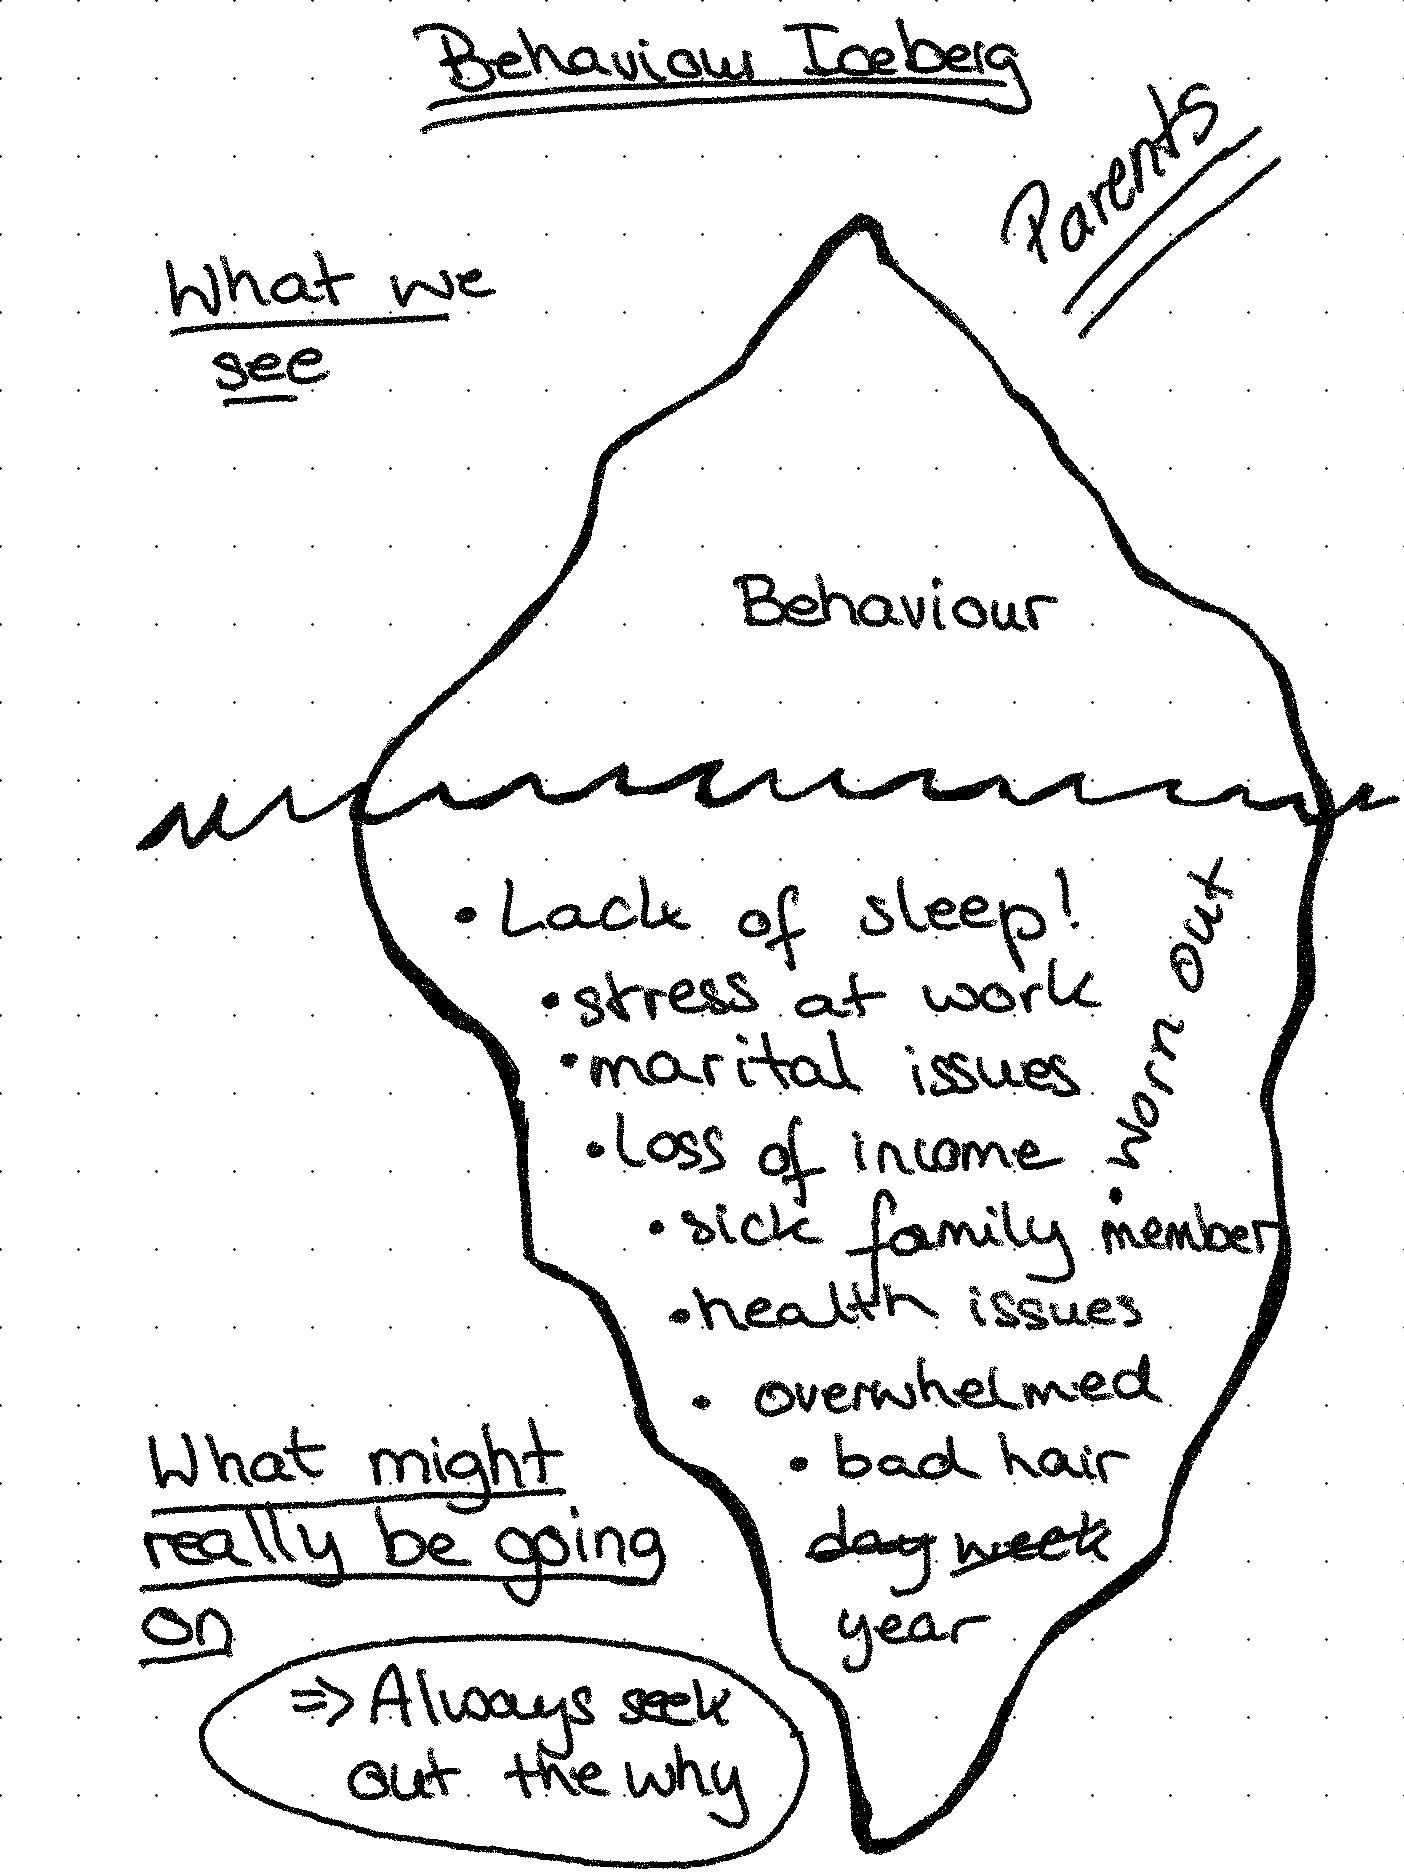 Behaviour Iceberg
Parents
What we
see
Behaviour
• Lack of sleep!
• stress at work
• marital issues
• loss of income
• worn out
• sick family member
• health issues
• overwhelmed
• bad hair
~~day~~ ~~week~~
year
What might
really be going
on
⇒ Always seek
out the why